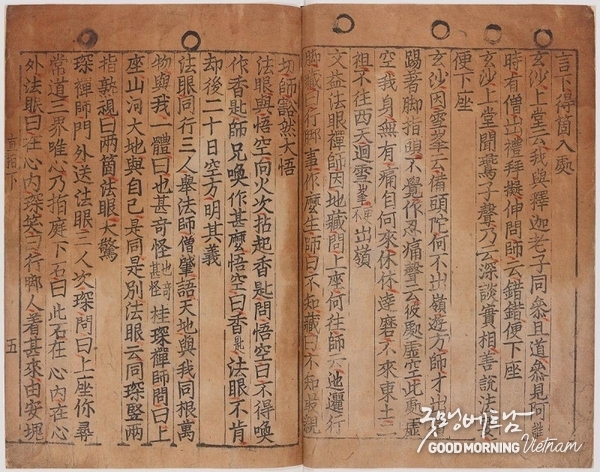 言下得箇入處
玄沙上堂云我與釋迦老子同叅且道叅見何誰
時有僧出禮拜擬伸問師云錯錯便下座
玄沙上堂聞鷰子聲乃云深談實相善說法
便下座
玄沙因雪峯云備頭陀何不出嶺遊方師才出
踢著脚指頭不覺作忍痛聲云彼處虛空此處虛
空我身無有痛自何來休休達磨不來東土二
祖不往西天迴雪峯更不出嶺
文益法眼禪師因地藏問上座何往師云迆邐行
脚藏曰行脚事作麽生師曰不知藏曰不知最親
切師豁然大悟
法眼與悟空向火次拈起香匙問悟空曰不得喚
作香匙師兄喚作甚麽悟空曰香匙法眼不肯
却後二十日空方明其義
法眼同行三人舉法師僧肇語天地與我同根萬
物與我一體曰也甚奇怪也甚奇怪桂琛禪師問曰上
座山河大地與自己是同是別法眼云同琛竪兩
指熟視曰兩箇法眼大驚
琛禪師門外送法眼三人次琛問曰上座你尋
常道三界唯心乃指庭下石曰此石在心內在心
外法眼曰在心內琛笑曰行脚人著甚來由安塊
直指下 五
굿모닝베트남
GOOD MORNING Vietnam